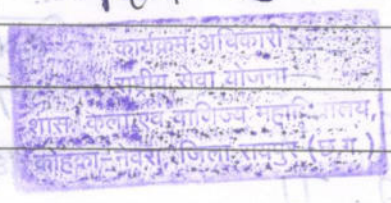 कार्यक्रम अधिकारी
राष्ट्रीय सेवा योजना
शास. कला एवं वाणिज्य महाविद्यालय,
कोहका-नेवरा, जिला रायपुर (छ.ग.)